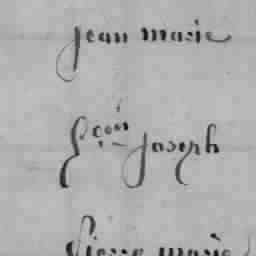 jean marie
fçois joseph
Pierre marie